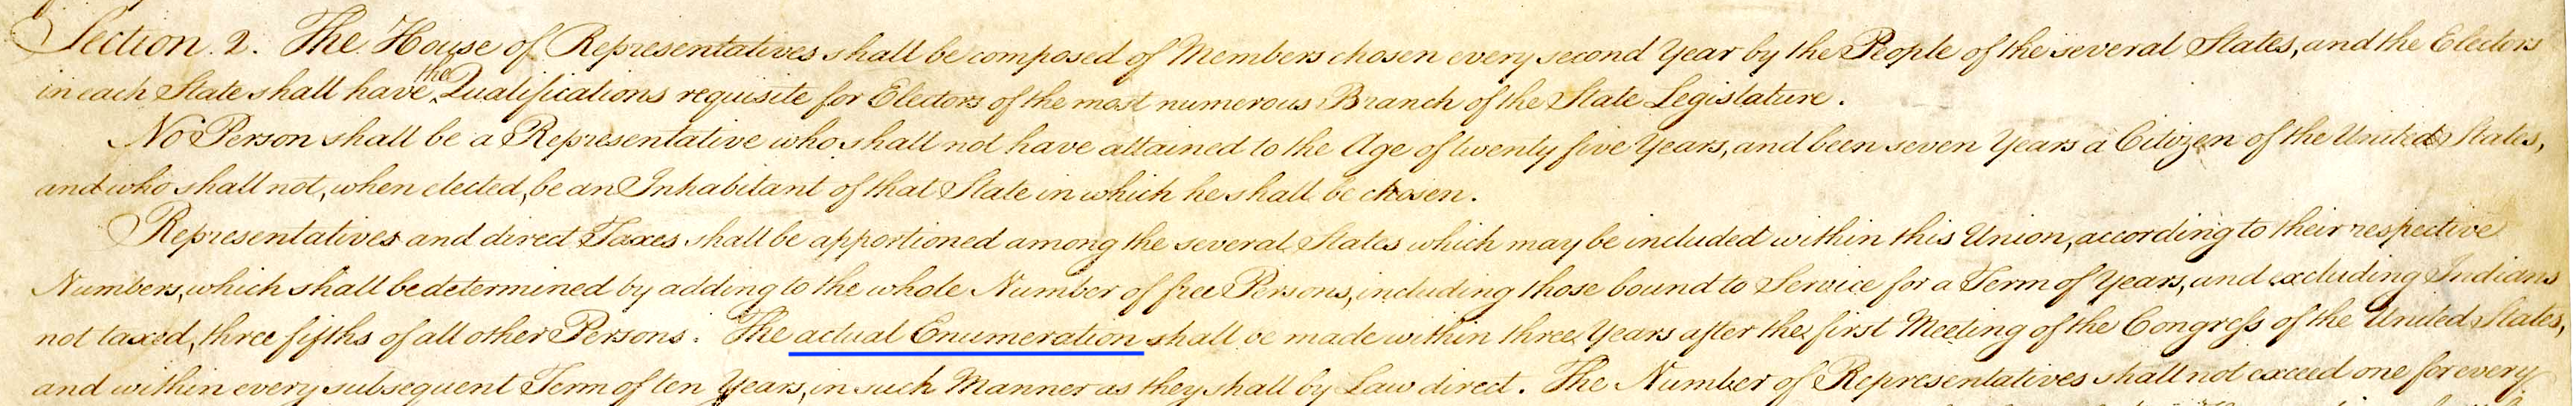 Section. 2. The House of Representatives shall be composed of Members chosen every second Year by the People of the several States, and the Electors
in each State shall have the Qualifications requisite for Electors of the most numerous Branch of the State Legislature.
No Person shall be a Representative who shall not have attained to the Age of twenty five Years, and been seven Years a Citizen of the United States,
and who shall not, when elected, be an Inhabitant of that State in which he shall be chosen.
Representatives and direct Taxes shall be apportioned among the several States which may be included within this Union, according to their respective
Numbers, which shall be determined by adding to the whole Number of free Persons, including those bound to Service for a Term of Years, and excluding Indians
not taxed, three fifths of all other Persons. The actual Enumeration shall be made within three Years after the first Meeting of the Congress of the United States,
and within every subsequent Term of ten Years, in such Manner as they shall by Law direct. The Number of Representatives shall not exceed one for every